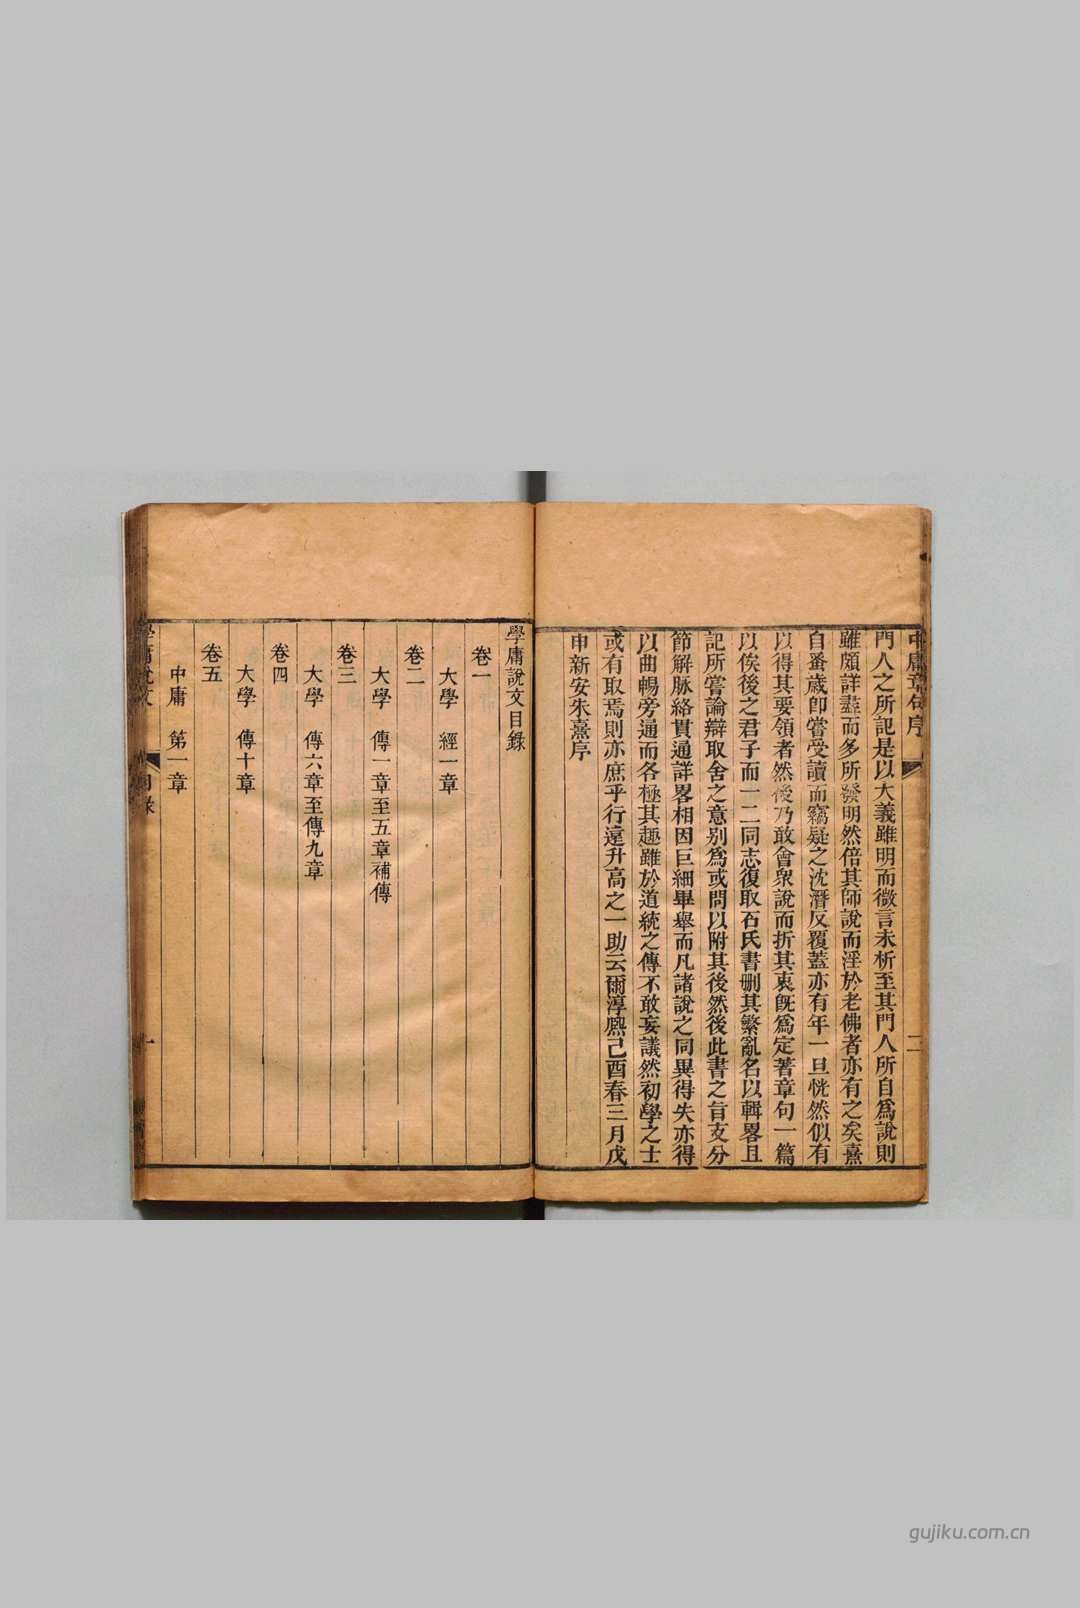 中庸章句序 二
門人之所記是以大義雖明而微言未析至其門人所自爲說則
雖頗詳盡而多所發明然倍其師說而淫於老佛者亦有之矣熹
自蚤歲卽嘗受讀而竊疑之沈潛反覆蓋亦有年一旦恍然似有
以得其要領者然後乃敢會衆說而折其衷旣爲定著章句一篇
以俟後之君子而一二同志復取石氏書删其繁亂名以輯畧且
記所嘗論辯取舍之意別爲或問以附其後然後此書之旨支分
節解脉絡貫通詳畧相因巨細畢舉而凡諸說之同異得失亦得
以曲暢旁通而各極其趣雖於道統之傳不敢妄議然初學之士
或有取焉則亦庶乎行遠升高之一助云爾淳熈己酉春三月戊
申新安朱熹序
學庸說文目錄
卷一
大學 經一章
卷二
大學 傳一章至五章補傳
卷三
大學 傳六章至傳九章
卷四
大學 傳十章
卷五
中庸 第一章
學庸說文 目錄 一
gujiku.com.cn